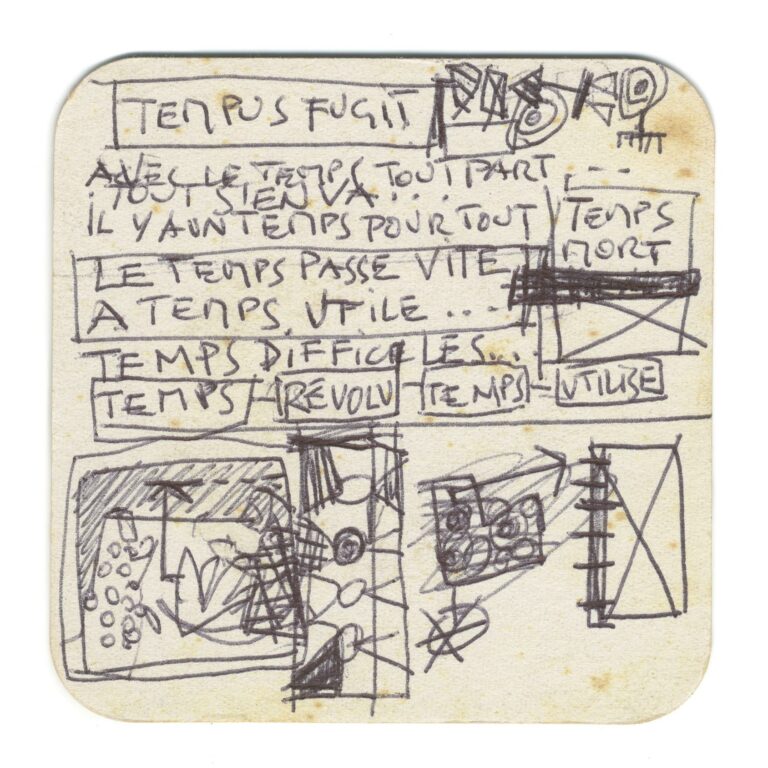 TEMPUS FUGIT
AVEC LE TEMPS TOUT PART ...
TOUT S'EN VA ...
IL Y A UN TEMPS POUR TOUT
TEMPS
MORT
LE TEMPS PASSE VITE
A TEMPS UTILE ....
TEMPS DIFFICILES...
TEMPS - RÉVOLU - TEMPS - UTILISE